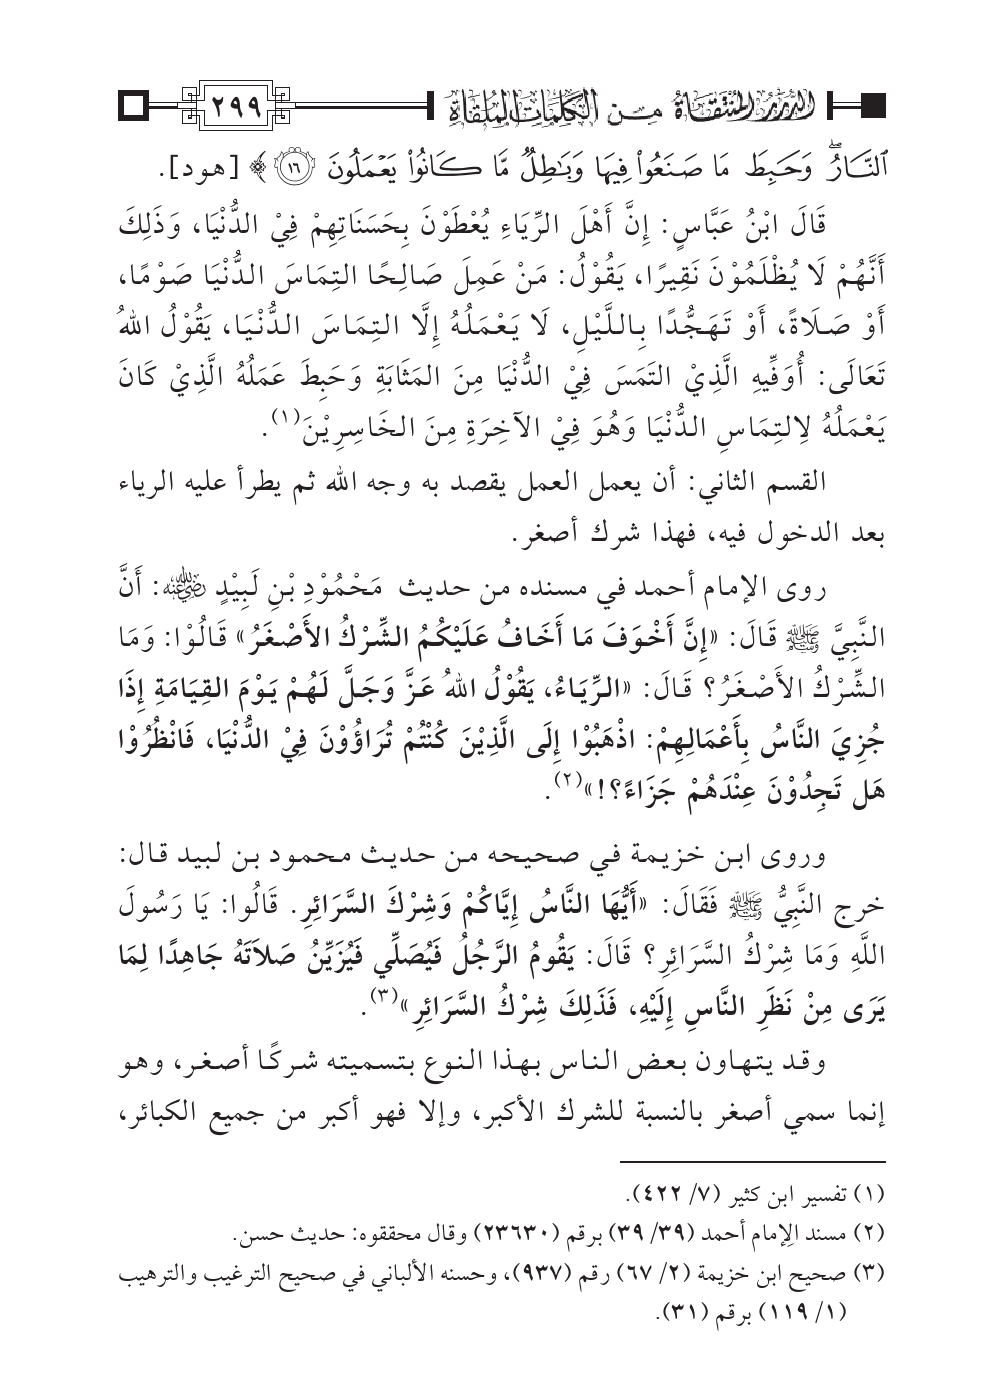 الدرر المنتقاة من الكلمات الملقاة ٢٩٩
ٱلنَّارُ ۖ وَحَبِطَ مَا صَنَعُوا۟ فِيهَا وَبَـٰطِلٌ مَّا كَانُوا۟ يَعْمَلُونَ ١٦ ﴾ [هود].
قَالَ ابْنُ عَبَّاسٍ: إِنَّ أَهْلَ الرِّيَاءِ يُعْطَوْنَ بِحَسَنَاتِهِمْ فِيْ الدُّنْيَا، وَذَلِكَ
أَنَّهُمْ لَا يُظْلَمُوْنَ نَقِيرًا، يَقُوْلُ: مَنْ عَمِلَ صَالِحًا التِمَاسَ الدُّنْيَا صَوْمًا،
أَوْ صَلَاةً، أَوْ تَهَجُّدًا بِاللَّيْلِ، لَا يَعْمَلُهُ إِلَّا التِمَاسَ الدُّنْيَا، يَقُوْلُ اللهُ
تَعَالَى: أُوَفِّيهِ الَّذِيْ التَمَسَ فِيْ الدُّنْيَا مِنَ المَثَابَةِ وَحَبِطَ عَمَلُهُ الَّذِيْ كَانَ
يَعْمَلُهُ لِالتِمَاسِ الدُّنْيَا وَهُوَ فِيْ الآخِرَةِ مِنَ الخَاسِرِيْنَ(١).
القسم الثاني: أن يعمل العمل يقصد به وجه الله ثم يطرأ عليه الرياء
بعد الدخول فيه، فهذا شرك أصغر.
روى الإمام أحمد في مسنده من حديث مَحْمُوْدِ بْنِ لَبِيْدٍ رضي الله عنه: أَنَّ
النَّبِيَّ ﷺ قَالَ: «إِنَّ أَخْوَفَ مَا أَخَافُ عَلَيْكُمُ الشِّرْكُ الأَصْغَرُ» قَالُوْا: وَمَا
الشِّرْكُ الأَصْغَرُ؟ قَالَ: «الرِّيَاءُ، يَقُوْلُ اللهُ عَزَّ وَجَلَّ لَهُمْ يَوْمَ القِيَامَةِ إِذَا
جُزِيَ النَّاسُ بِأَعْمَالِهِمْ: اذْهَبُوْا إِلَى الَّذِيْنَ كُنْتُمْ تُرَاؤُوْنَ فِيْ الدُّنْيَا، فَانْظُرُوْا
هَل تَجِدُوْنَ عِنْدَهُمْ جَزَاءً؟!»(٢).
وروى ابن خزيمة في صحيحه من حديث محمود بن لبيد قال:
خرج النَّبِيُّ ﷺ فَقَالَ: «أَيُّهَا النَّاسُ إِيَّاكُمْ وَشِرْكَ السَّرَائِرِ. قَالُوا: يَا رَسُولَ
اللَّهِ وَمَا شِرْكُ السَّرَائِرِ؟ قَالَ: يَقُومُ الرَّجُلُ فَيُصَلِّي فَيُزَيِّنُ صَلاَتَهُ جَاهِدًا لِمَا
يَرَى مِنْ نَظَرِ النَّاسِ إِلَيْهِ، فَذَلِكَ شِرْكُ السَّرَائِرِ»(٣).
وقد يتهاون بعض الناس بهذا النوع بتسميته شركًا أصغر، وهو
إنما سمي أصغر بالنسبة للشرك الأكبر، وإلا فهو أكبر من جميع الكبائر،
(١) تفسير ابن كثير (٧/ ٤٢٢).
(٢) مسند الإمام أحمد (٣٩/ ٣٩) برقم (٢٣٦٣٠) وقال محققوه: حديث حسن.
(٣) صحيح ابن خزيمة (٢/ ٦٧) رقم (٩٣٧)، وحسنه الألباني في صحيح الترغيب والترهيب
(١/ ١١٩) برقم (٣١).